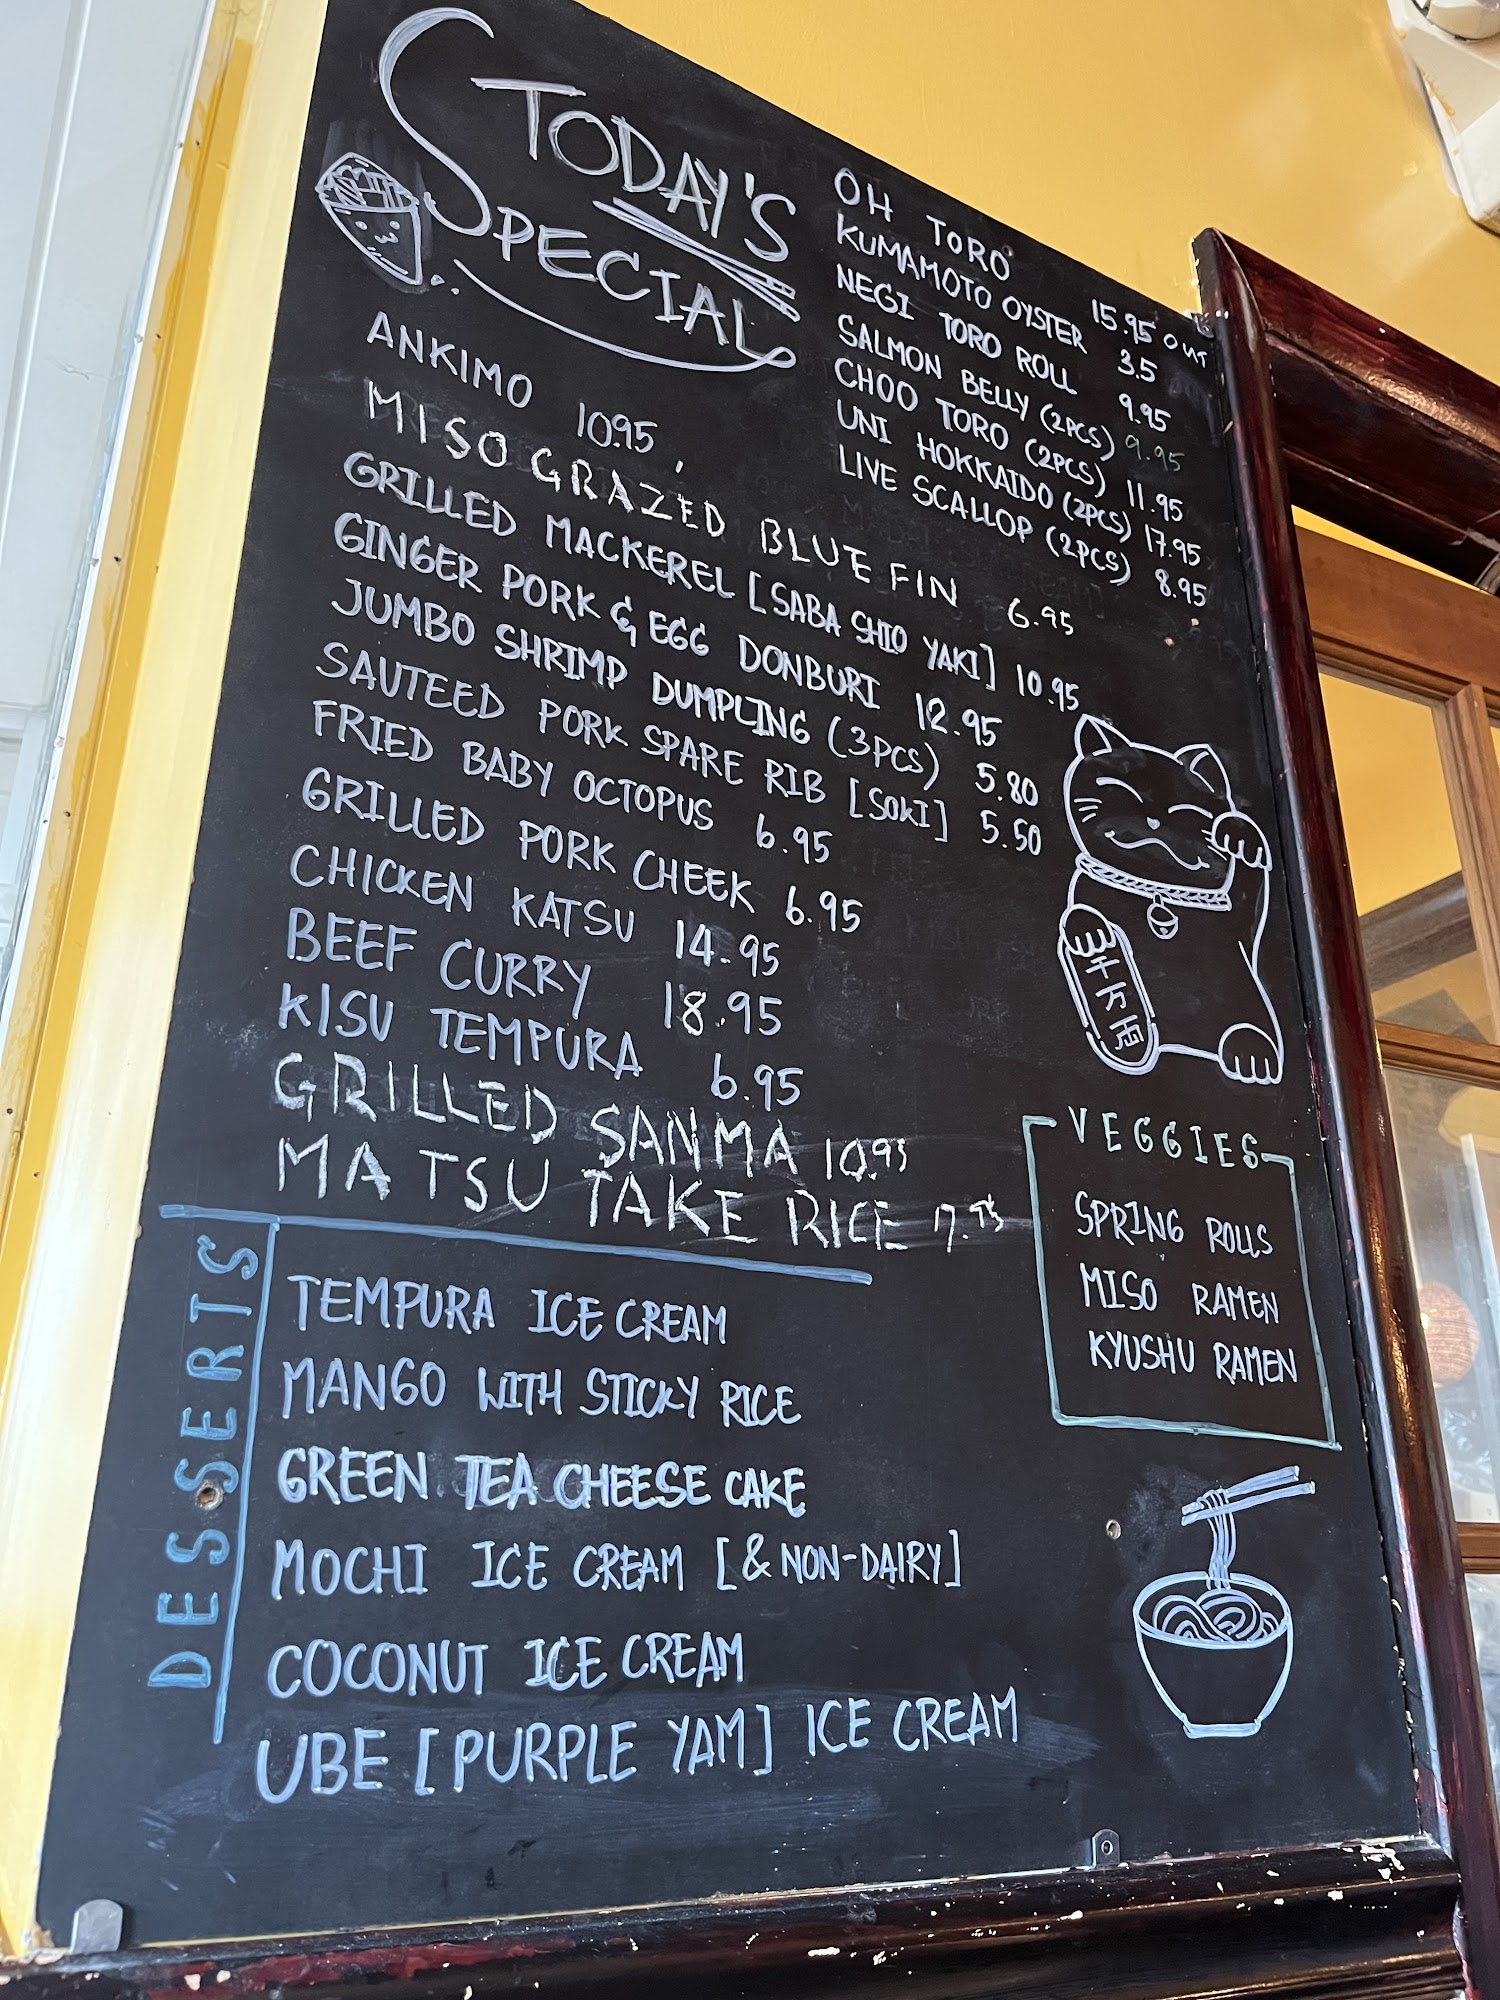 TODAY'S
SPECIAL
ANKIMO 10.95
MISO GRAZED BLUE FIN 6.95
GRILLED MACKEREL [SABA SHIO YAKI] 10.95
GINGER PORK & EGG DONBURI 12.95
JUMBO SHRIMP DUMPLING (3PCS) 5.80
SAUTEED PORK SPARE RIB [SOKI] 5.50
FRIED BABY OCTOPUS 6.95
GRILLED PORK CHEEK 6.95
CHICKEN KATSU 14.95
BEEF CURRY 18.95
KISU TEMPURA 6.95
GRILLED SANMA 10.95
MATSU TAKE RICE 7.75
OH TORO 15.95 OUT
KUMAMOTO OYSTER 3.5
NEGI TORO ROLL 9.95
SALMON BELLY (2PCS) 9.95
CHOO TORO (2PCS) 11.95
UNI HOKKAIDO (2PCS) 17.95
LIVE SCALLOP (2PCS) 8.95
千万両
VEGGIES
SPRING ROLLS
MISO RAMEN
KYUSHU RAMEN
DESSERTS
TEMPURA ICE CREAM
MANGO WITH STICKY RICE
GREEN TEA CHEESE CAKE
MOCHI ICE CREAM [& NON-DAIRY]
COCONUT ICE CREAM
UBE [PURPLE YAM] ICE CREAM